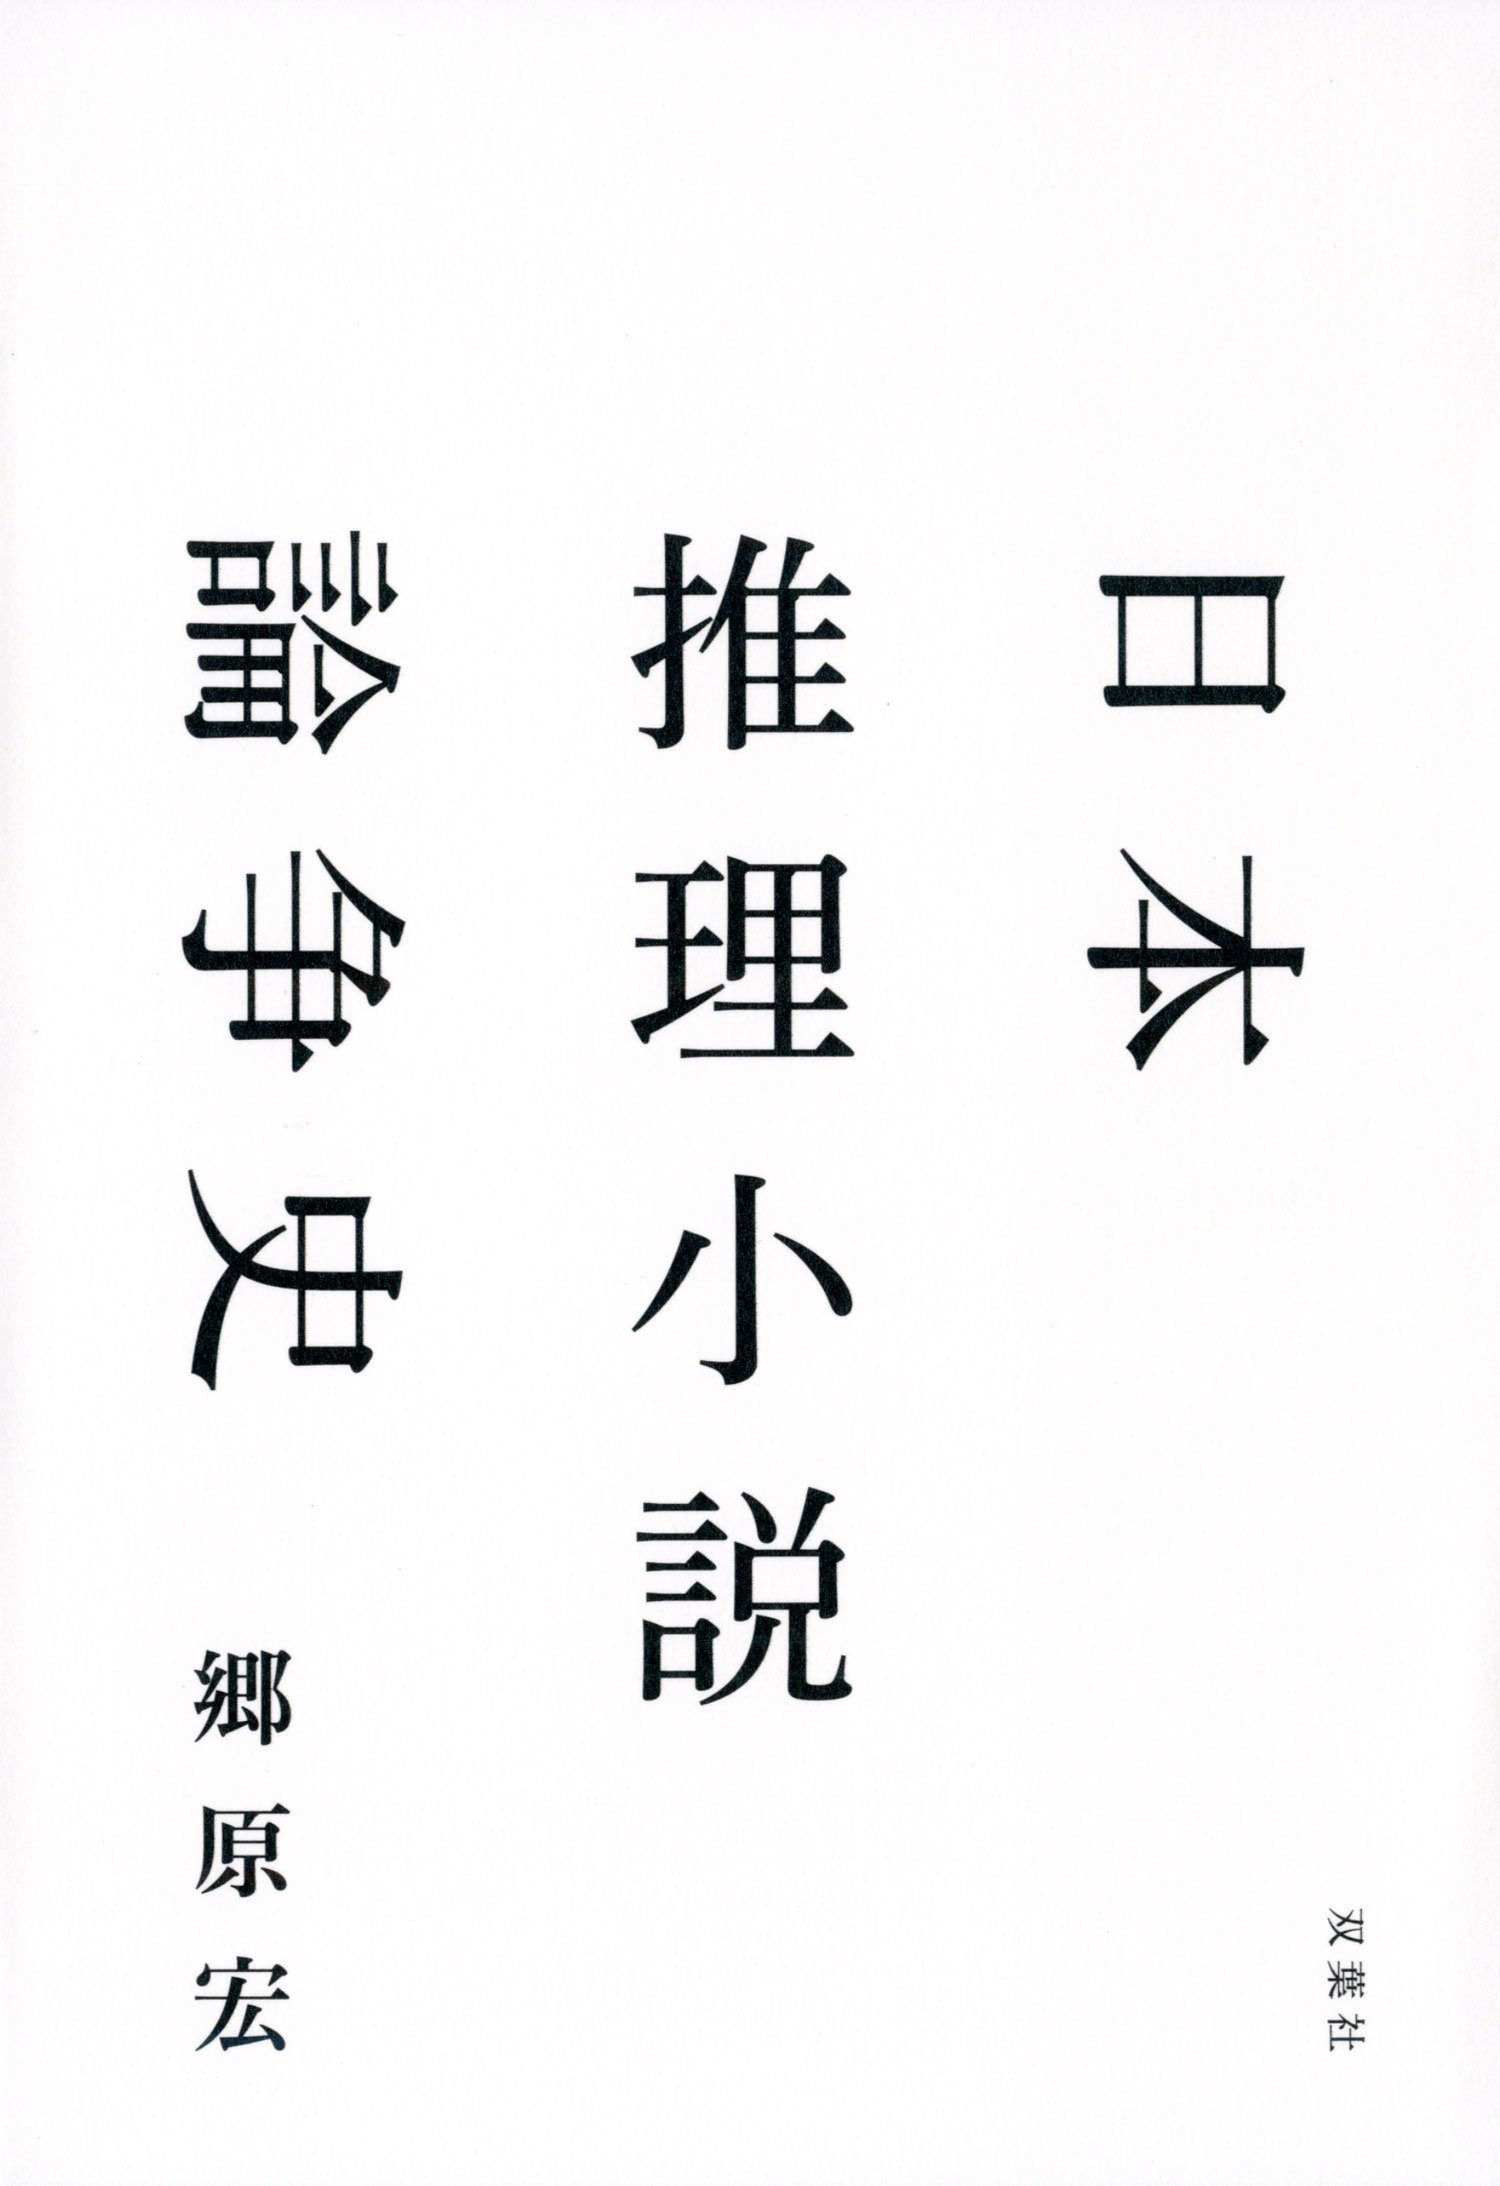 日本
推理小説
論争史
郷原宏
双葉社